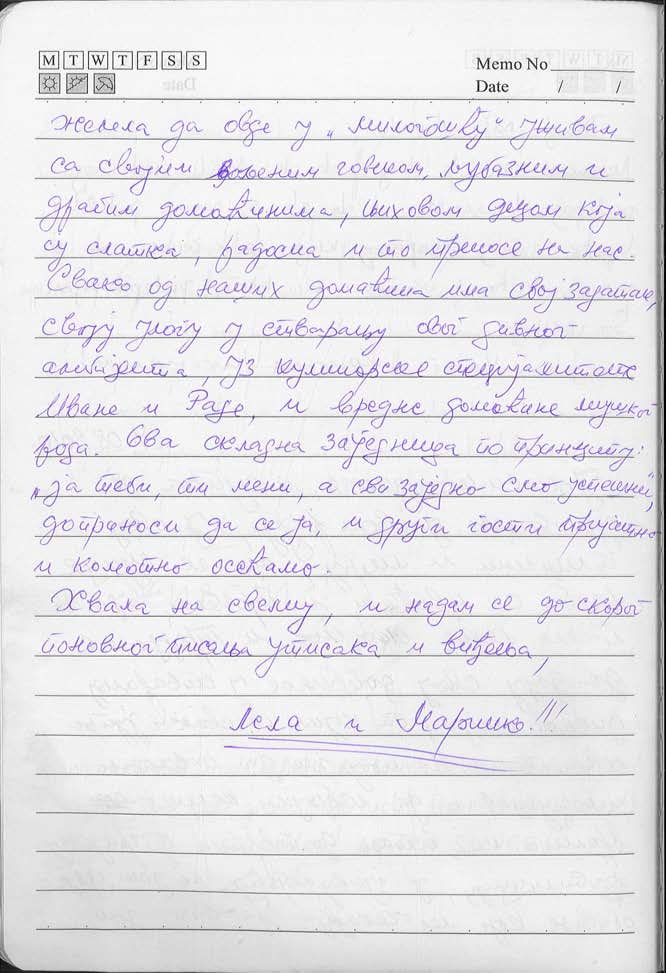 M T W T F S S
Memo No
Date / /
желела да овде у „Милогошћу“ уживам
са својим вољеним човеком, љубазним и
драгим домаћинима, њиховом децом која
су слатка, радосна и то преносе на нас.
Свако од наших домаћина има свој задатак,
своју улогу у стварању овог дивног
амбијента, уз кулинарске специјалитете
Иване и Раде, и вредне домаћине мушког
рода. Ова складна заједница по принципу:
„ја теби, ти мени, а сви заједно смо успешни“,
доприноси да се ја, и други гости пријатно
и комотно осећамо.
Хвала на свему, и надам се до скорог
поновног писања утисака и виђења,
Лела и Маринко!!!